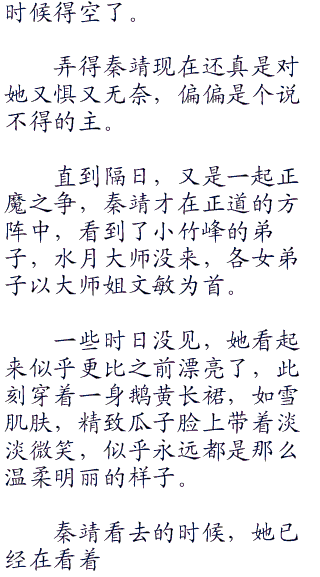 时候得空了。
弄得秦靖现在还真是对
她又惧又无奈，偏偏是个说
不得的主。
直到隔日，又是一起正
魔之争，秦靖才在正道的方
阵中，看到了小竹峰的弟
子，水月大师没来，各女弟
子以大师姐文敏为首。
一些时日没见，她看起
来似乎更比之前漂亮了，此
刻穿着一身鹅黄长裙，如雪
肌肤，精致瓜子脸上带着淡
淡微笑，似乎永远都是那么
温柔明丽的样子。
秦靖看去的时候，她已
经在看着